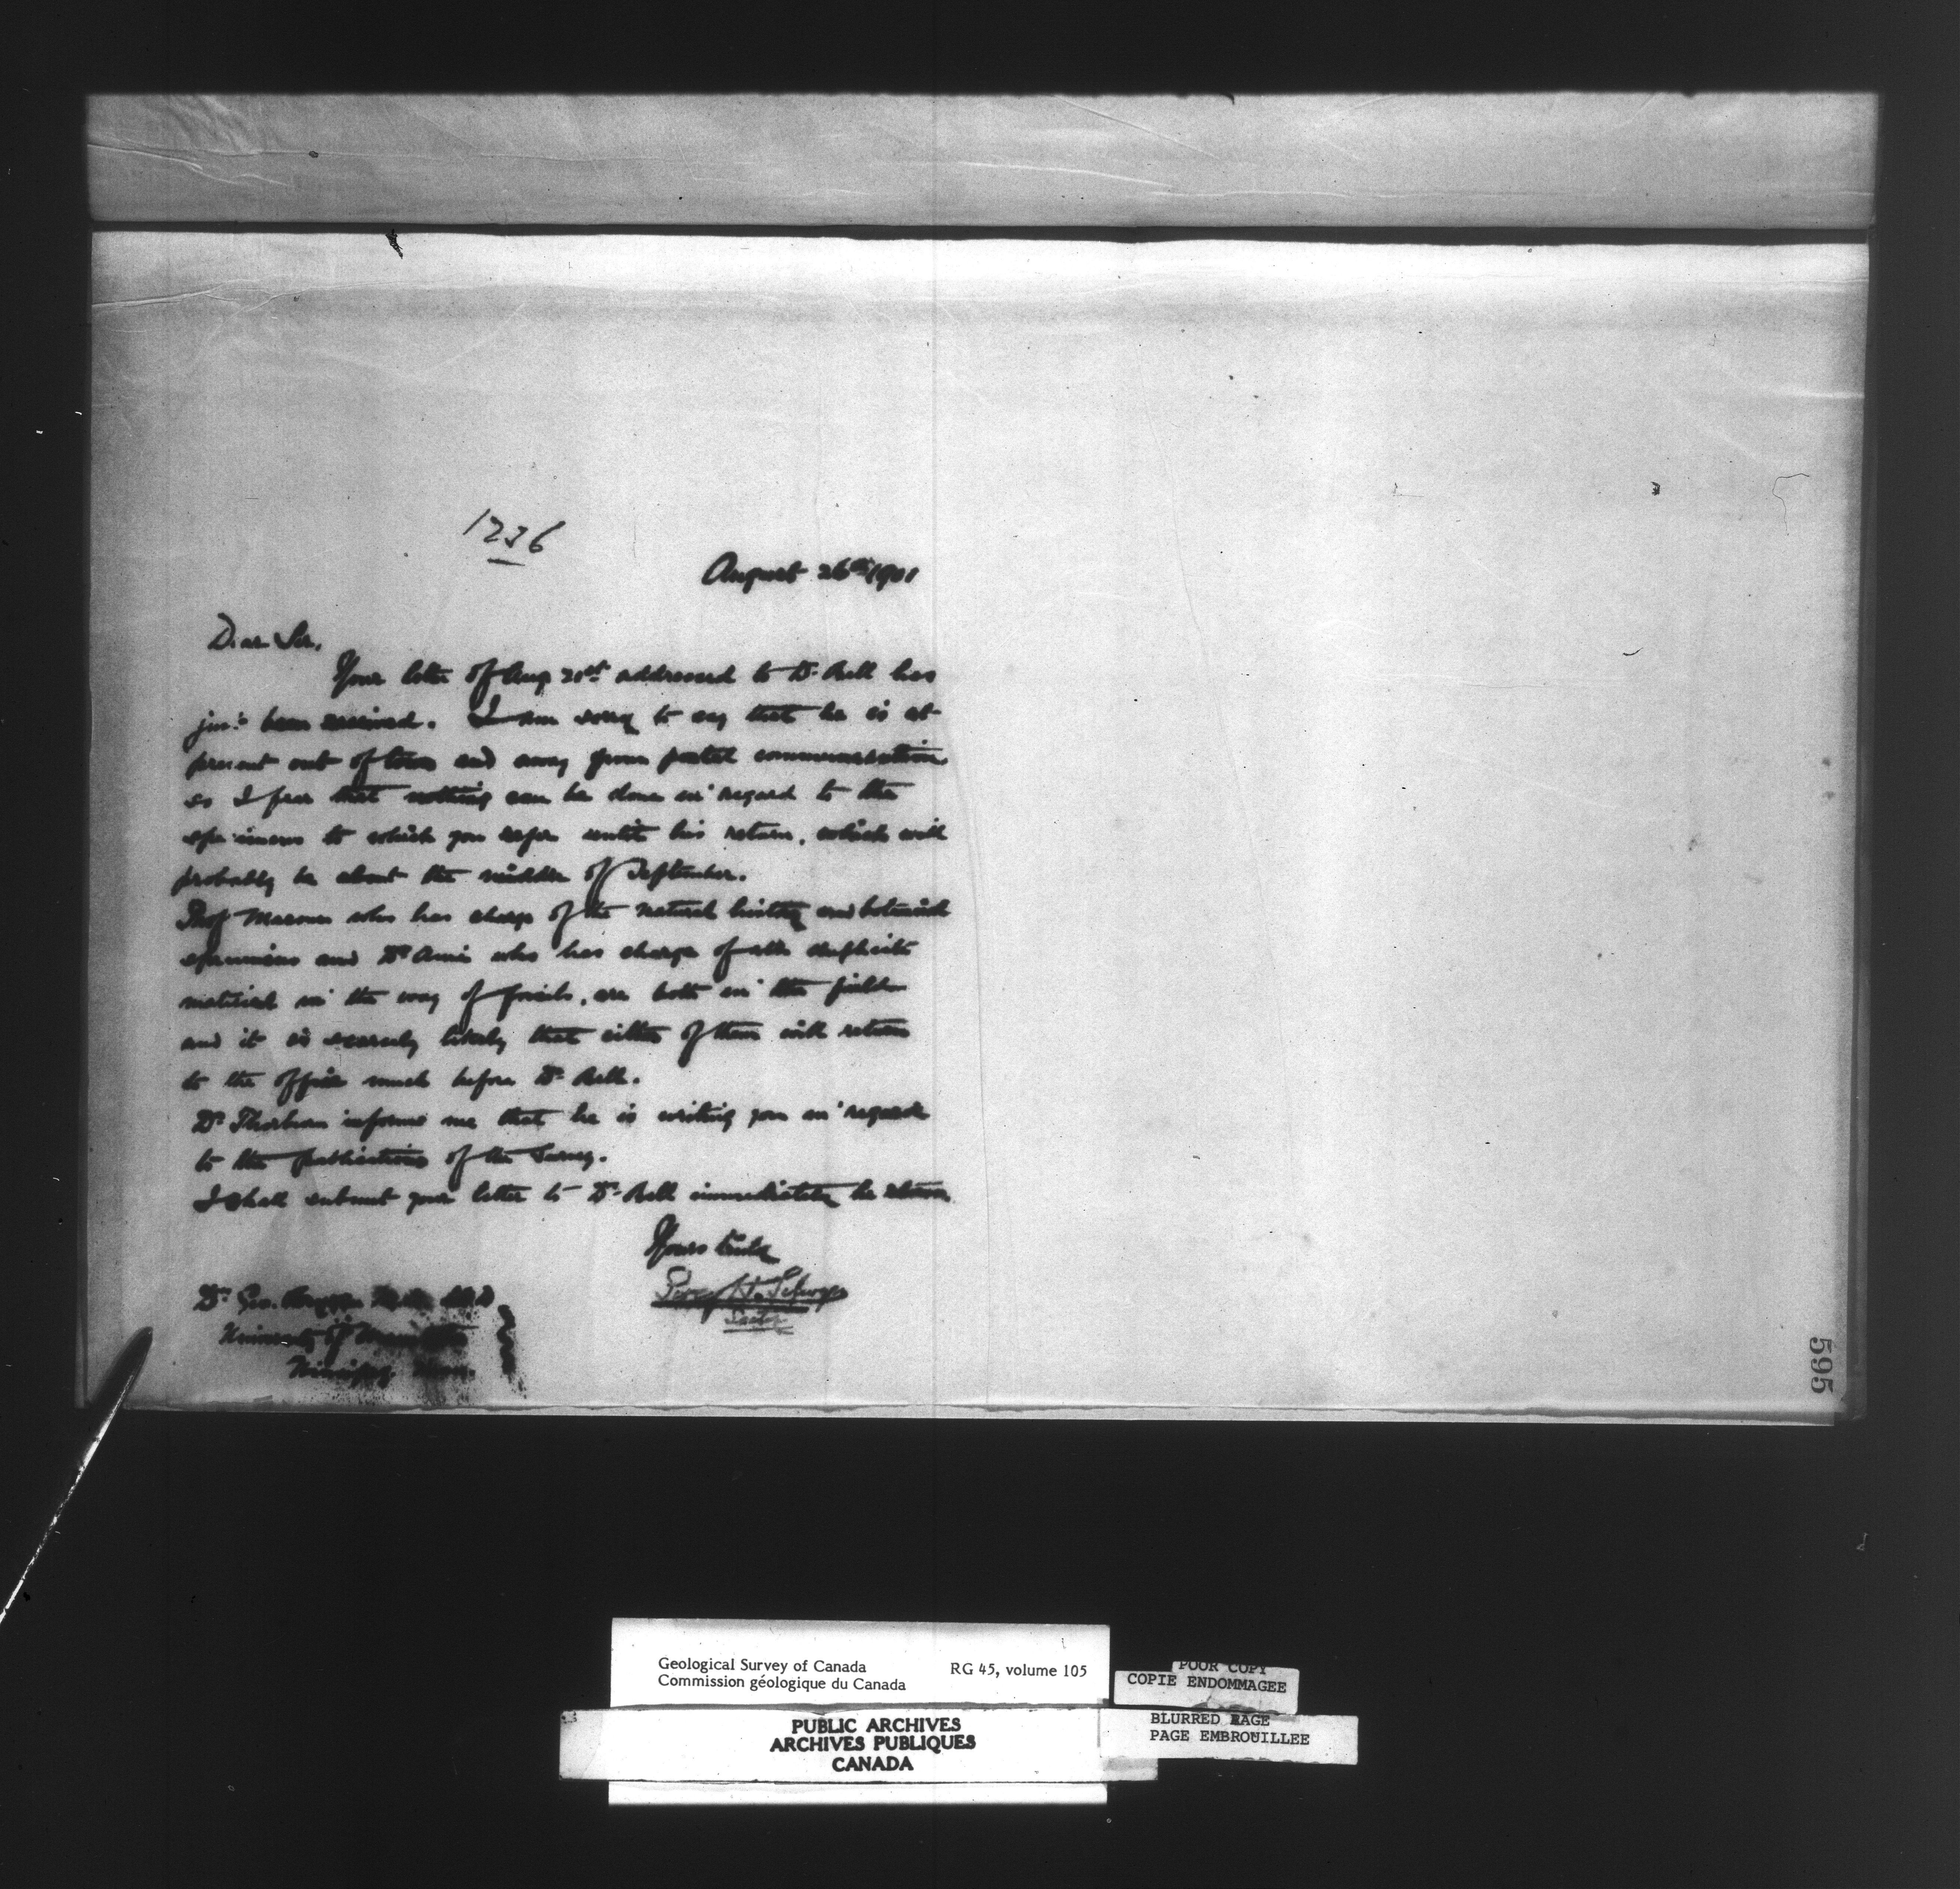 1236
August 26th 1901
Dear Sir,
Your letter of Aug 21st addressed to Dr. Bell has
just been received. I am sorry to say that he is at
present out of town and away from postal communication
so I fear that nothing can be done in regard to the
specimens to which you refer until his return, which will
probably be about the middle of September.
Prof Macoun who has charge of the natural history and botanical
specimens and Dr Ami who has charge of all duplicate
material in the way of fossils, are both in the field
and it is scarcely likely that either of them will return
to the office much before Dr. Bell.
Dr Thorburn informs me that he is writing you in regard
to the publications of the Survey.
I shall submit your letter to Dr. Bell immediately he returns
Yours truly
Percy H. Selwyn
Secty
Dr Geo. Bryce
University of Manitoba
Winnipeg, Man.
595
Geological Survey of Canada RG 45, volume 105
Commission géologique du Canada
POOR COPY
COPIE ENDOMMAGEE
BLURRED PAGE
PAGE EMBROUILLEE
PUBLIC ARCHIVES
ARCHIVES PUBLIQUES
CANADA